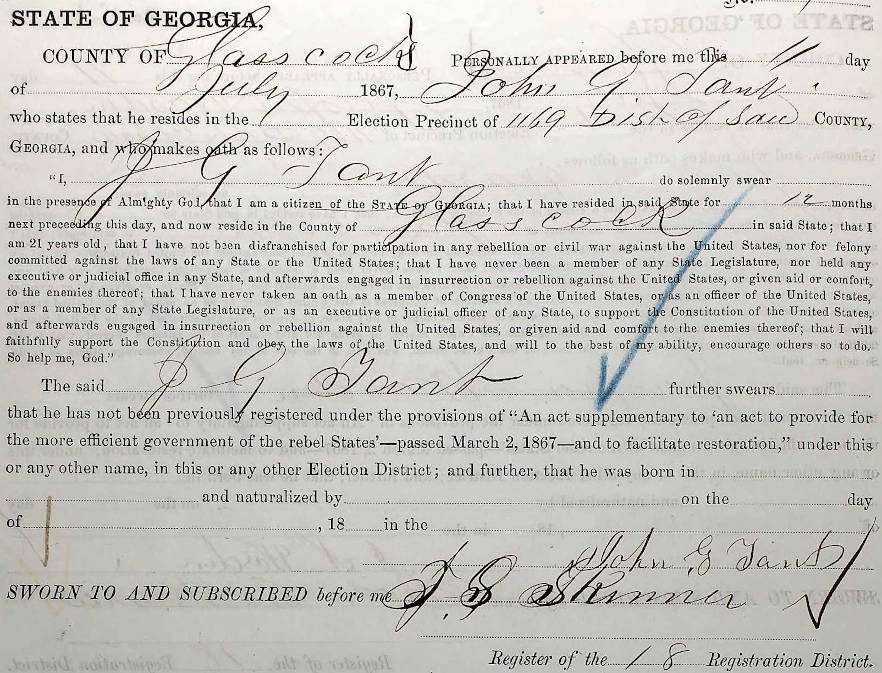 STATE OF GEORGIA,
COUNTY OF Glasscock } PERSONALLY APPEARED before me this 11 day
of July 1867, John G Tant
who states that he resides in the Election Precinct of 1169 Dist of Said COUNTY,
GEORGIA, and who makes oath as follows:
"I, J G Tant do solemnly swear
in the presence of Almighty God, that I am a citizen of the STATE OF GEORGIA; that I have resided in said State for 12 months
next preceeding this day, and now reside in the County of Glasscock in said State; that I
am 21 years old, that I have not been disfranchised for participation in any rebellion or civil war against the United States, nor for felony
committed against the laws of any State or the United States; that I have never been a member of any State Legislature, nor held any
executive or judicial office in any State, and afterwards engaged in insurrection or rebellion against the United States, or given aid or comfort,
to the enemies thereof; that I have never taken an oath as a member of Congress of the United States, or as an officer of the United States,
or as a member of any State Legislature, or as an executive or judicial officer of any State, to support the Constitution of the United States,
and afterwards engaged in insurrection or rebellion against the United States, or given aid and comfort to the enemies thereof; that I will
faithfully support the Constitution and obey the laws of the United States, and will to the best of my ability, encourage others so to do.
So help me, God."
The said J G Tant further swears
that he has not been previously registered under the provisions of "An act supplementary to 'an act to provide for
the more efficient government of the rebel States'—passed March 2, 1867—and to facilitate restoration," under this
or any other name, in this or any other Election District; and further, that he was born in
and naturalized by on the day
of , 18 in the
John G Tant
SWORN TO AND SUBSCRIBED before me J S Skinner
Register of the 18 Registration District.